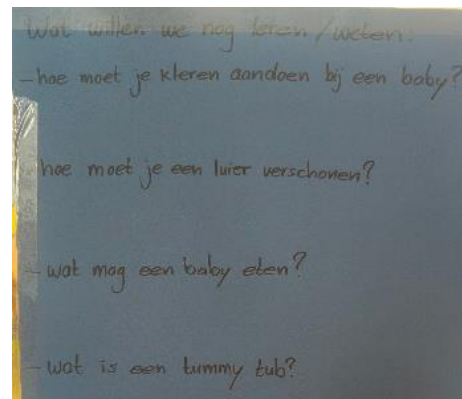 Wat willen we nog leren/weten:
- hoe moet je kleren aandoen bij een baby?
- hoe moet je een luier verschonen?
- wat mag een baby eten?
- wat is een tummy tub?